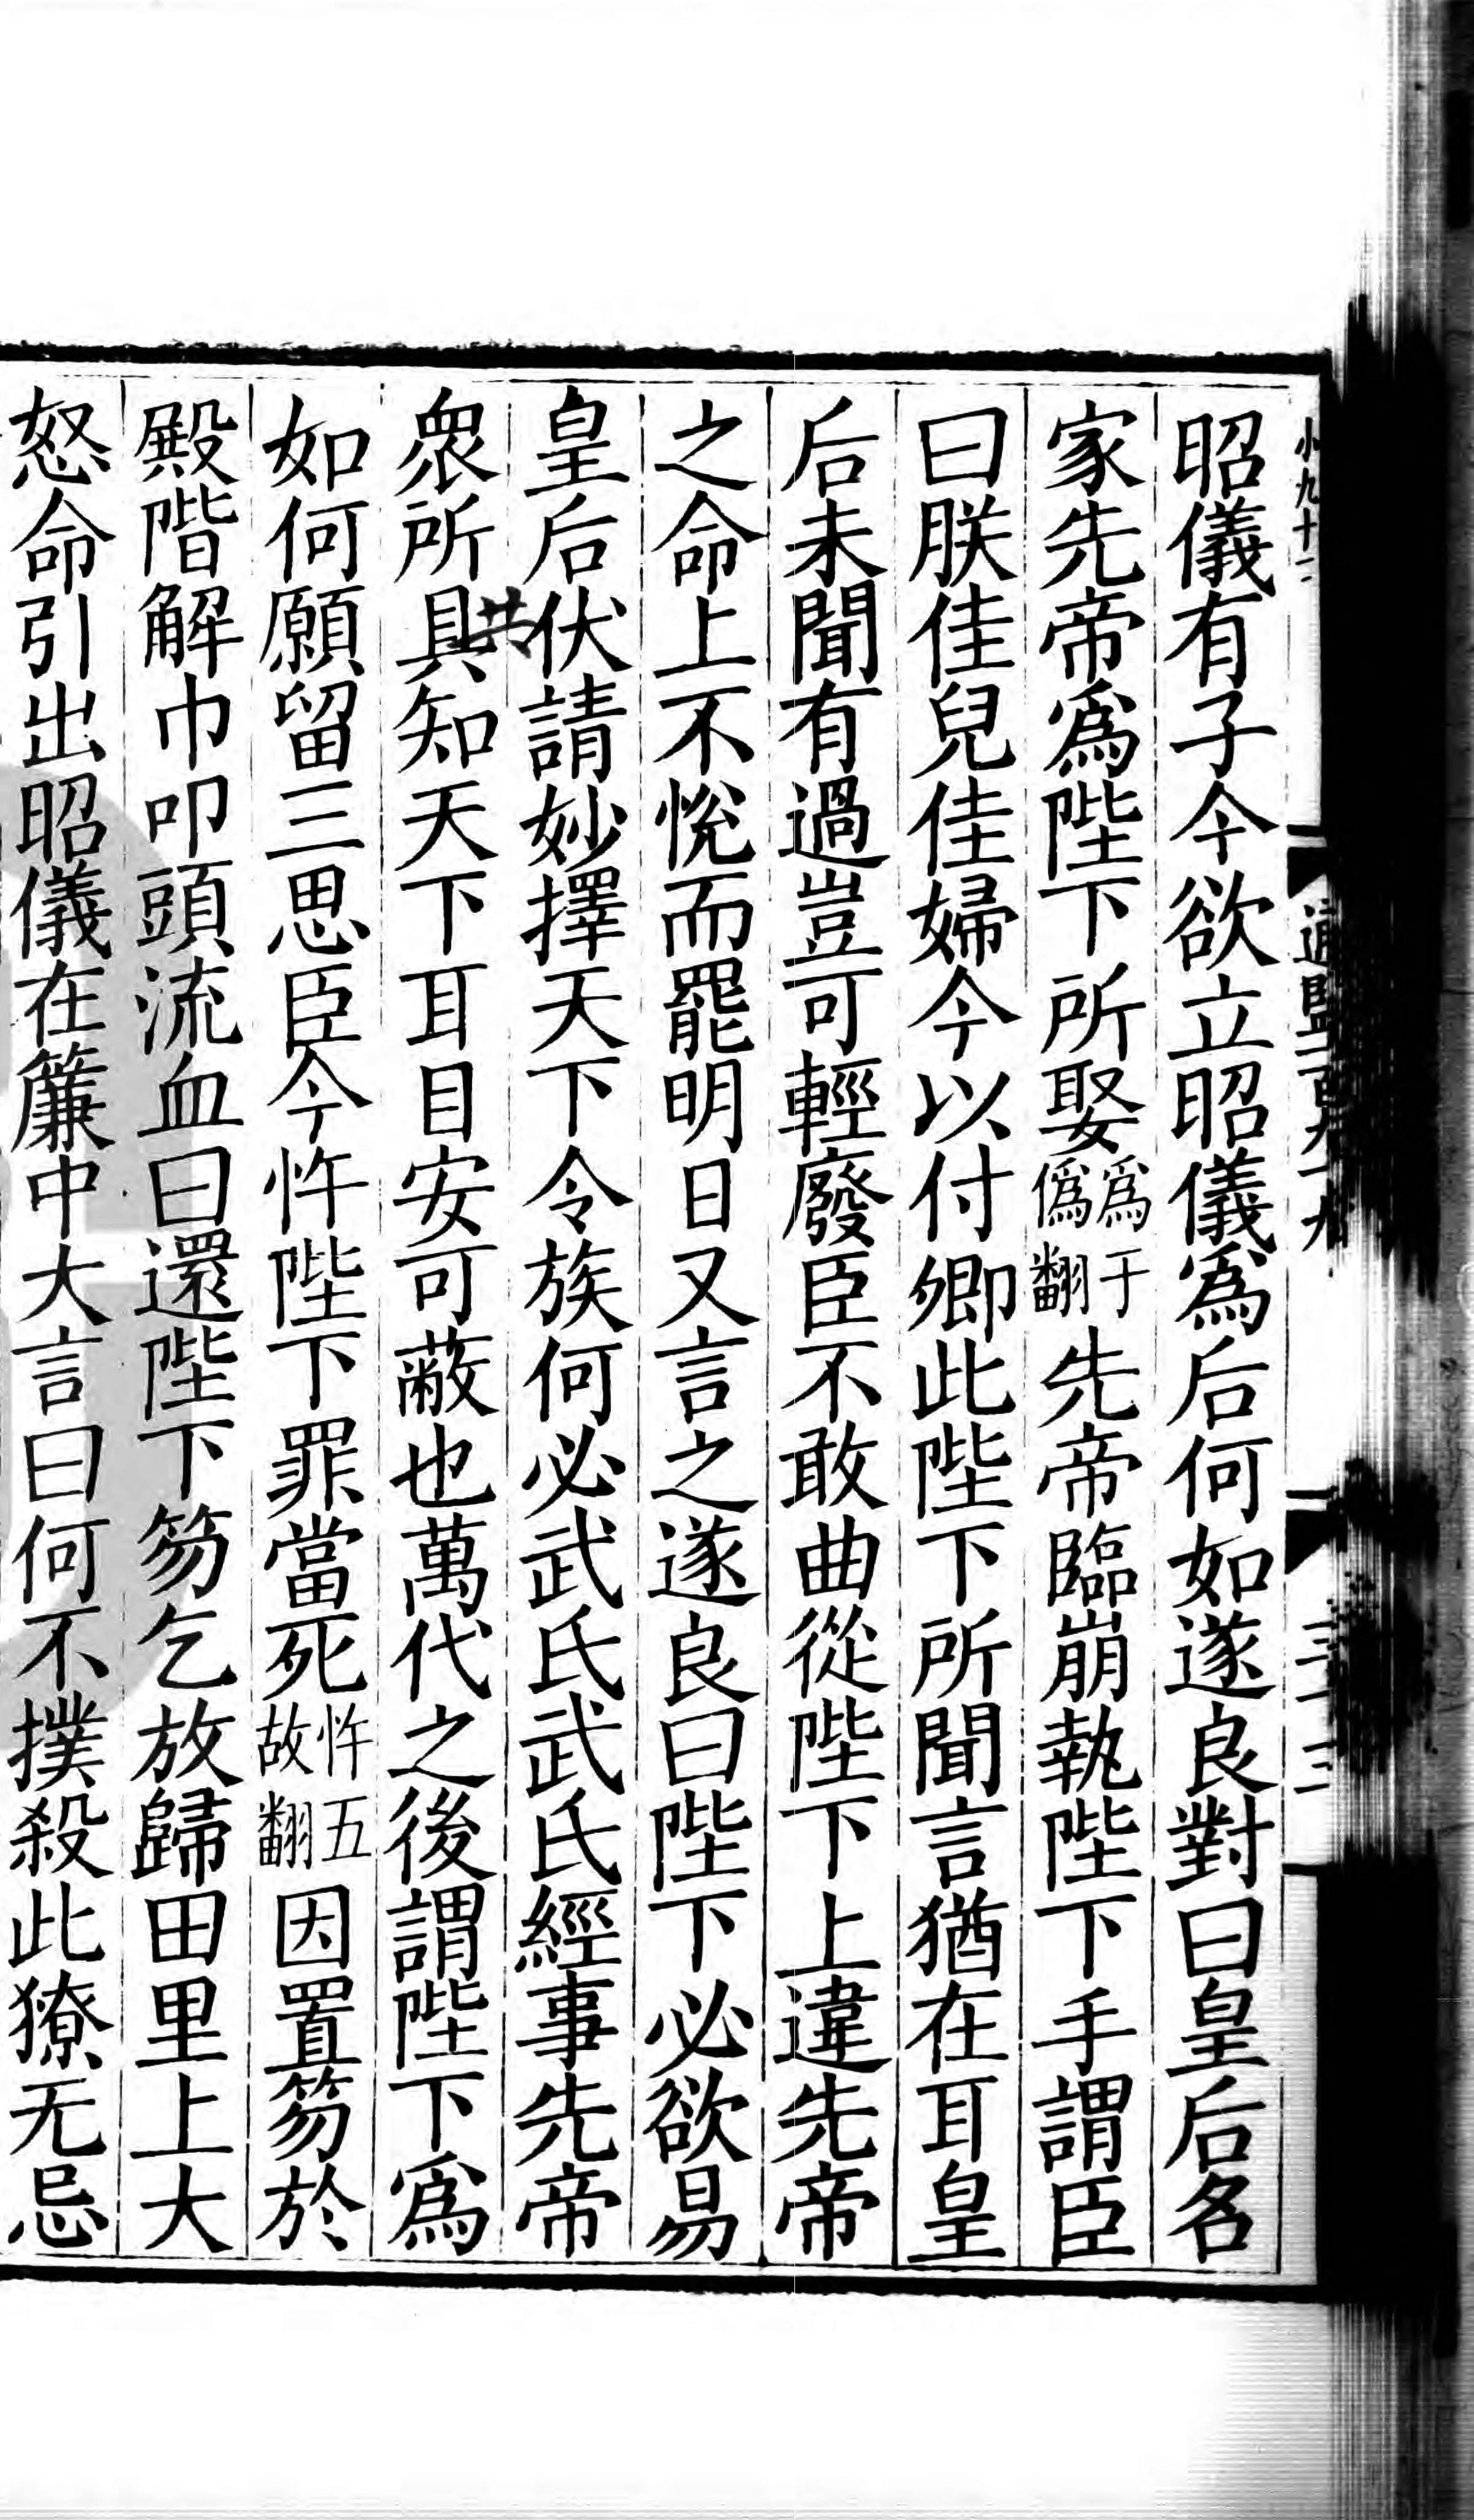 昭儀有子今欲立昭儀爲后何如遂良對曰皇后名
家先帝爲陛下所娶爲于僞翻先帝臨崩執陛下手謂臣
曰朕佳兒佳婦今以付卿此陛下所聞言猶在耳皇
后未聞有過豈可輕廢臣不敢曲從陛下上違先帝
之命上不悅而罷明日又言之遂良曰陛下必欲易
皇后伏請妙擇天下令族何必武氏武氏經事先帝
衆所具知天下耳目安可蔽也萬代之後謂陛下爲
共
如何願留三思臣今忤陛下罪當死忤五故翻因置笏於
殿階解巾叩頭流血曰還陛下笏乞放歸田里上大
怒命引出昭儀在簾中大言曰何不撲殺此獠无忌